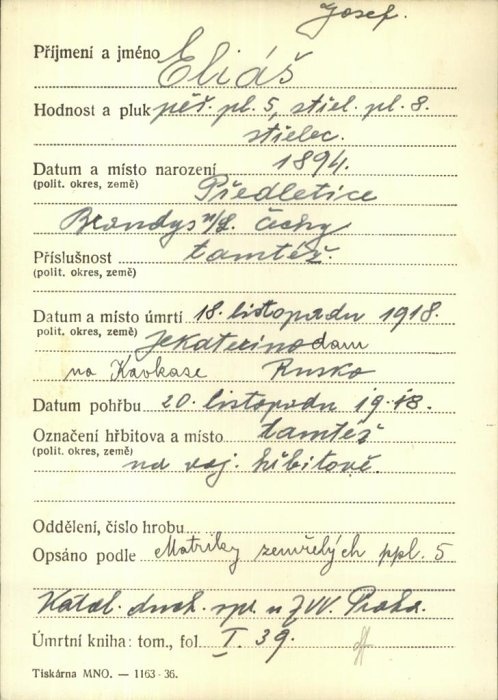 Josef.
Příjmení a jméno Eliáš
Hodnost a pluk pěš. pl. 5, střel. pl. 8.
střelec.
Datum a místo narození 1894.
(polit. okres, země) Předletice
Brandýs n/L. Čechy
Příslušnost tamtéž.
(polit. okres, země)
Datum a místo úmrtí 18. listopadu 1918.
polit. okres, země) Jekaterinodam
na Kavkase Rusko
Datum pohřbu 20. listopadu 1918.
Označení hřbitova a místo tamtéž
(polit. okres, země) na voj. hřbitově.
Oddělení, číslo hrobu
Opsáno podle Matriky zemřelých ppl. 5
Katol. duch. spr. u ZVV. Praha.
Úmrtní kniha: tom., fol. I. 39.
Tiskárna MNO. — 1163 - 36.